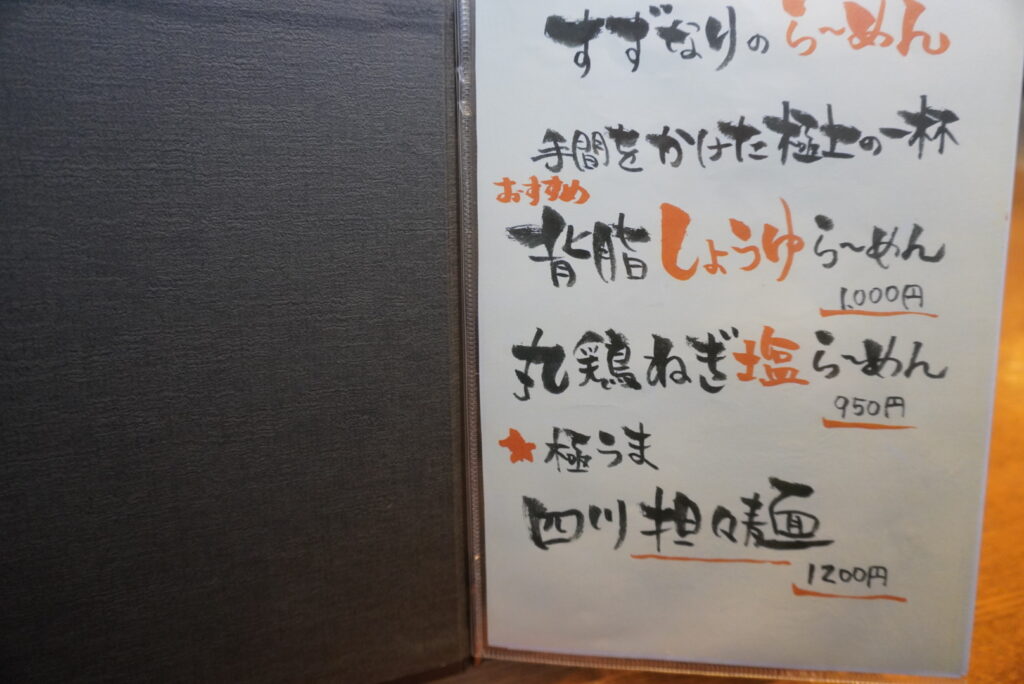 すずなりのら〜めん
手間をかけた極上の一杯
おすすめ
背脂しょうゆら〜めん
1,000円
丸鶏ねぎ塩ら〜めん
950円
★極うま
四川担々麺
1200円